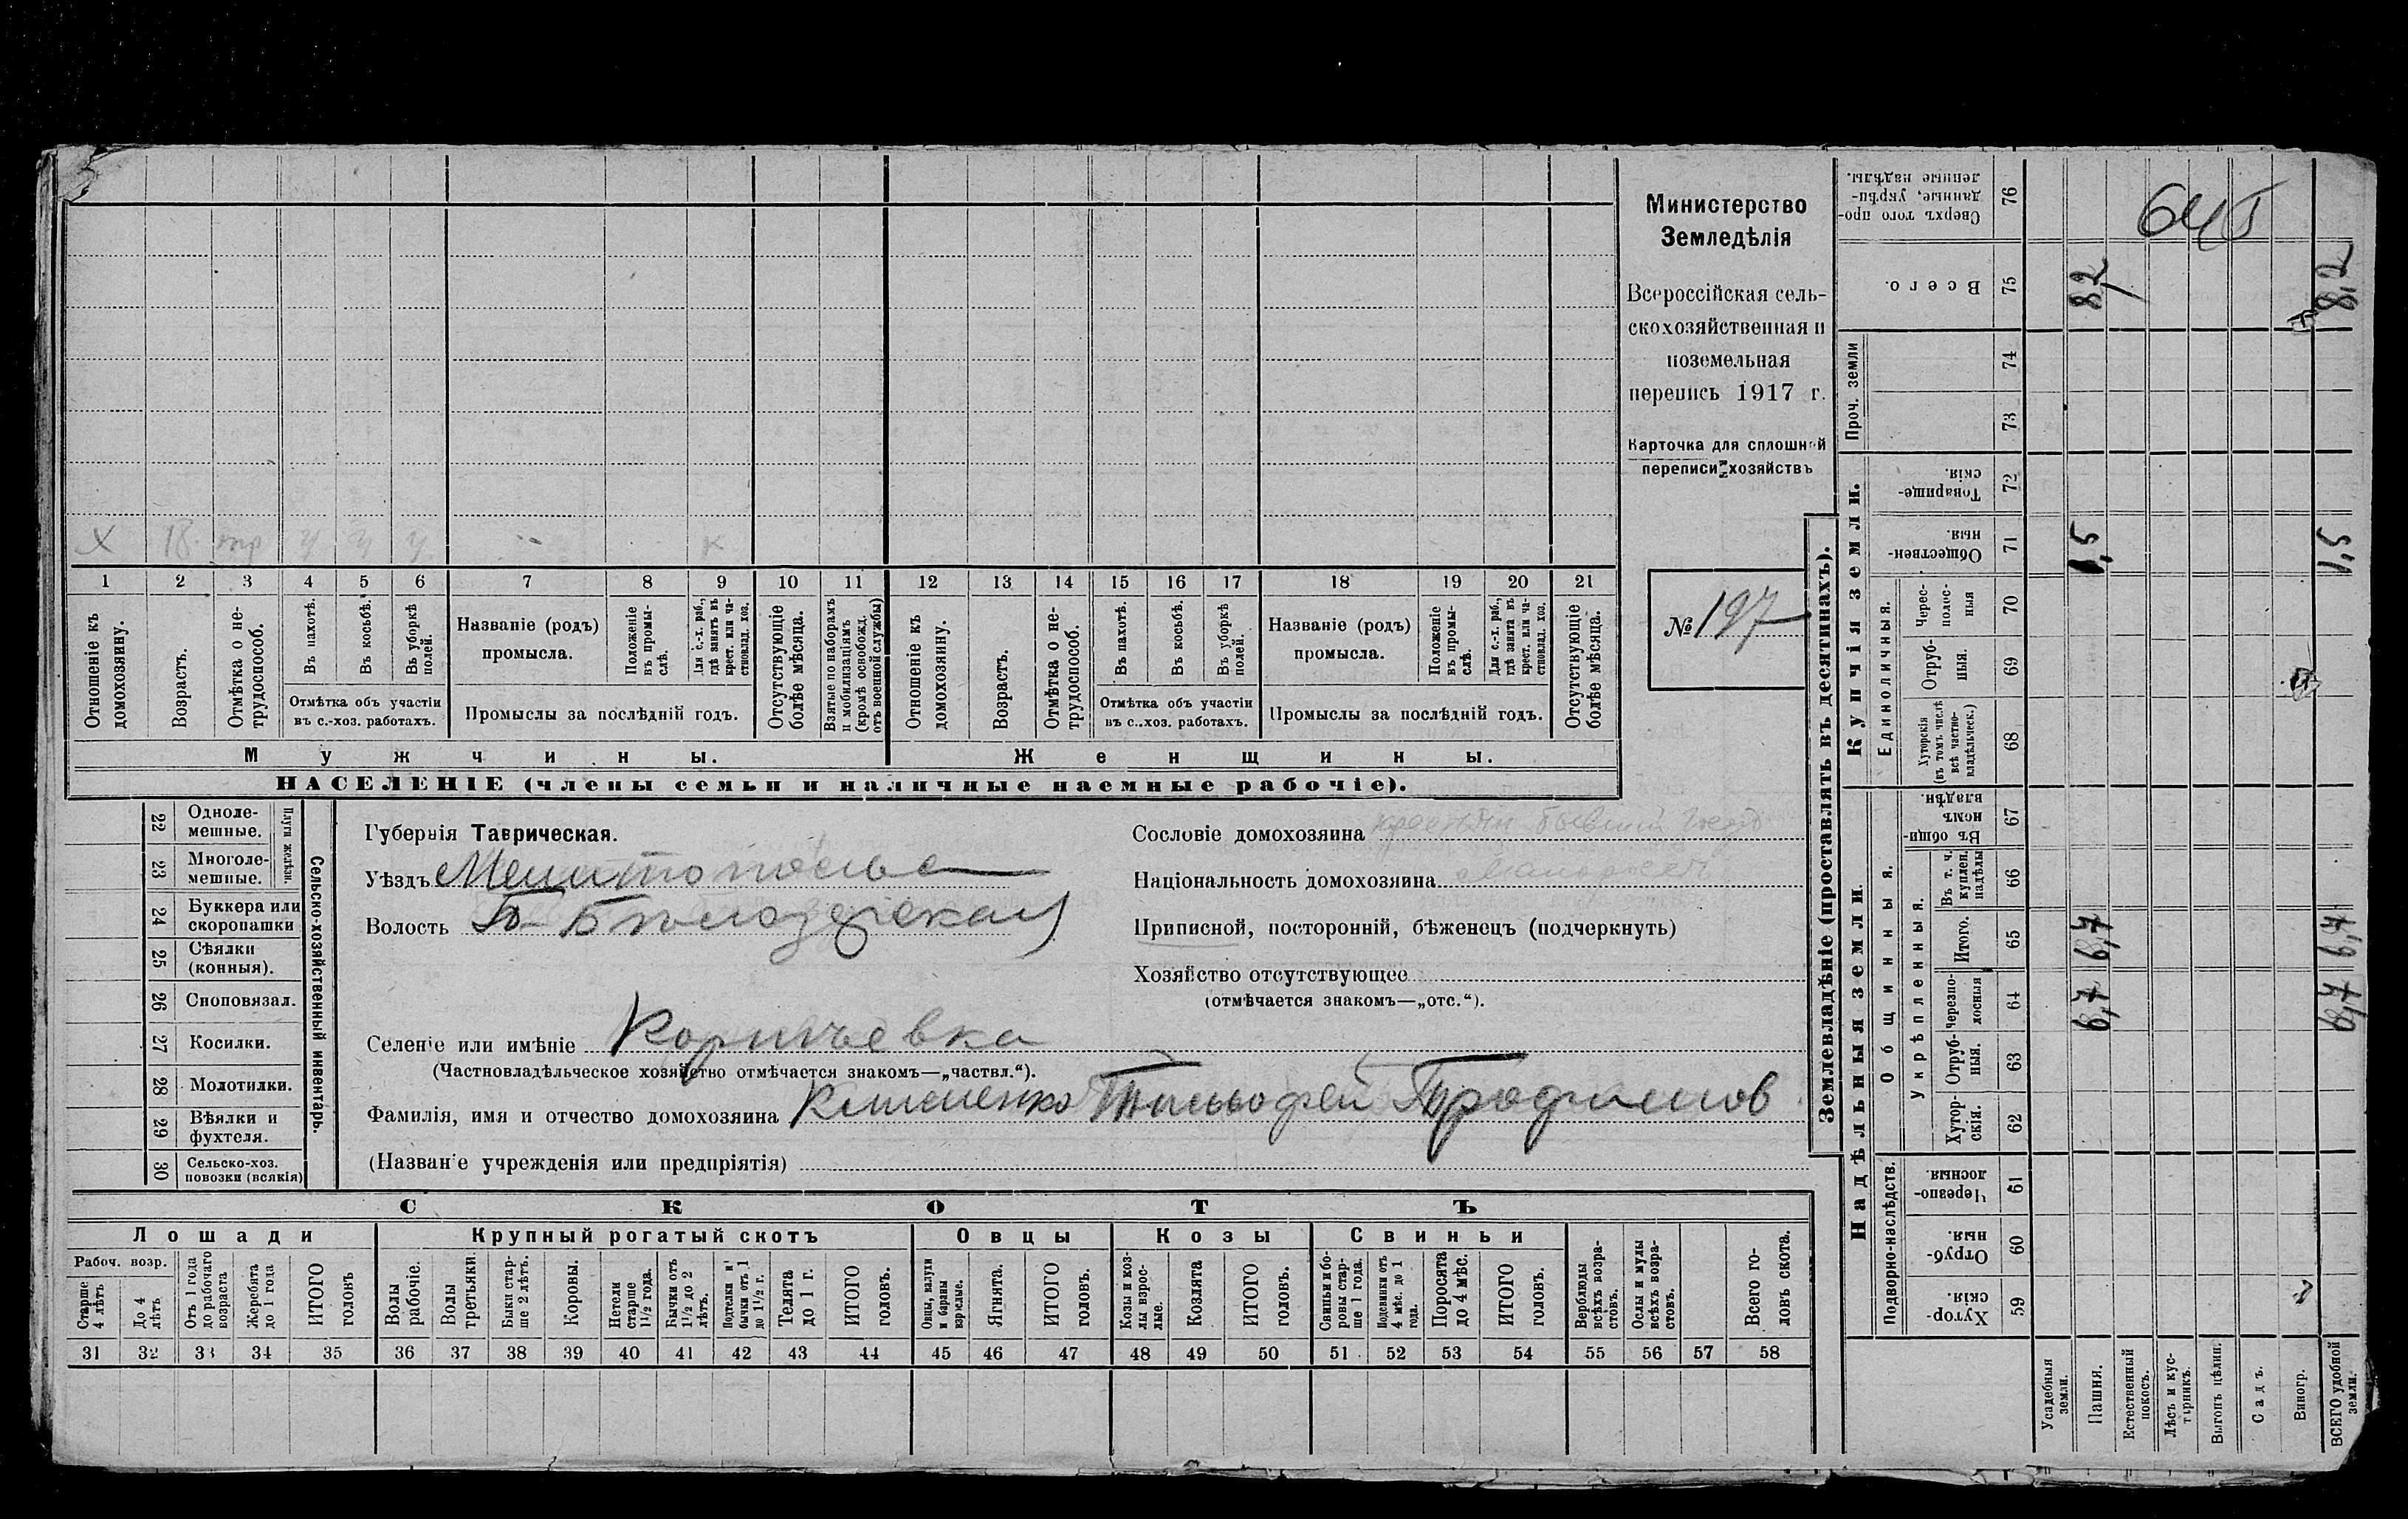 Министерство
Земледѣлія
Всероссійская сель-
скохозяйственная и
поземельная
перепись 1917 г.
Карточка для сплошной
переписи хозяйствъ
№ 197
645
Х 18
1 2 3 4 5 6 7 8 9 10 11 12 13 14 15 16 17 18 19 20 21
Отношеніе къ домохозяину.
Возрастъ.
Отмѣтка о не-трудоспособ.
Въ пахотѣ.
Въ косьбѣ.
Въ уборкѣ полей.
Отмѣтка объ участіи
въ с.-хоз. работахъ.
Названіе (родъ)
промысла.
Положеніе въ промы-слѣ.
Для с.-х. раб., гдѣ занятъ въ крест. или ча-стновлад. хоз.
Промыслы за послѣдній годъ.
Отсутствующіе болѣе мѣсяца.
Взятые по наборамъ и мобилизаціямъ (кромѣ освобожд. отъ военной службы)
Отношеніе къ домохозяину.
Возрастъ.
Отмѣтка о не-трудоспособ.
Въ пахотѣ.
Въ косьбѣ.
Въ уборкѣ полей.
Отмѣтка объ участіи
въ с.-хоз. работахъ.
Названіе (родъ)
промысла.
Положеніе въ промы-слѣ.
Для с.-х. раб., гдѣ занята въ крест. или ча-стновлад. хоз.
Промыслы за послѣдній годъ.
Отсутствующіе болѣе мѣсяца.
Мужчины.
Женщины.
НАСЕЛЕНІЕ (члены семьи и наличные наемные рабочіе).
Сельско-хозяйственный инвентарь.
Плуги желѣзн.
22 Одноле-мешные.
23 Многоле-мешные.
24 Буккера или скоропашки
25 Сѣялки (конныя).
26 Сноповязал.
27 Косилки.
28 Молотилки.
29 Вѣялки и фухтеля.
30 Сельско-хоз. повозки (всякія)
Губернія Таврическая.
Уѣздъ
Волость Б-Бѣлозерская
Селеніе или имѣніе
(Частновладѣльческое хозяйство отмѣчается знакомъ—„частвл.“).
Фамилія, имя и отчество домохозяина Клименко Тимофей Трофимов
(Названіе учрежденія или предпріятія)
Сословіе домохозяина
Національность домохозяина
Приписной, посторонній, бѣженецъ (подчеркнуть)
Хозяйство отсутствующее
(отмѣчается знакомъ—„отс.“).
СКОТЪ
Лошади
Крупный рогатый скотъ
Овцы
Козы
Свиньи
Рабоч. возр.
Старше 4 лѣтъ
До 4 лѣтъ
Отъ 1 года до рабочаго возраста
Жеребята до 1 года
ИТОГО головъ
Волы рабочіе.
Волы третьяки.
Быки стар-ше 2 лѣтъ.
Коровы.
Нетели старше 1½ года.
Бычки отъ 1½ до 2 лѣтъ.
Подтелки и бычки отъ 1 до 1½ г.
Телята до 1 г.
ИТОГО головъ.
Овцы, валухи и бараны взрослые.
Ягнята.
ИТОГО головъ.
Козы и коз-лы взрос-лые.
Козлята
ИТОГО головъ.
Свиньи и бо-ровы стар-ше 1 года.
Подсвинки отъ 4 мѣс. до 1 года.
Поросята до 4 мѣс.
ИТОГО головъ.
Верблюды всѣхъ возра-стовъ.
Ослы и мулы всѣхъ возра-стовъ.
Всего го-ловъ скота.
31 32 33 34 35 36 37 38 39 40 41 42 43 44 45 46 47 48 49 50 51 52 53 54 55 56 57 58
Землевладѣніе (проставлять въ десятинахъ).
Надѣльныя земли.
Купчія земли.
Проч. земли
Подворно-наслѣдств.
Общинныя.
Укрѣпленныя.
Единоличныя.
Хутор-скія. 59
Отруб-ныя 60
Черезпо-лосныя 61
Хутор-скія. 62
Отруб-ныя. 63
Черезпо-лосныя 64 6,7 6,7
Итого. 65 6,7 6,7
Въ т. ч. куплен. надѣлы 66
Въ общи-номъ владѣн. 67
Хуторскія (въ томъ числѣ всѣ частно-владѣльческ.) 68
Отруб-ныя. 69
Черес-полос-ныя 70
Обществен-ныя. 71 1,5 1,5
Товарище-скія. 72
73
74
Всего. 75 8,2 8,2
Сверхъ того про-данные, укрѣп-ленные надѣлы. 76
Усадебныя земли.
Пашня.
Естественный покосъ.
Лѣсъ и кус-тарникъ.
Выгонъ цѣлин.
Садъ.
Виногр.
ВСЕГО удобной земли.